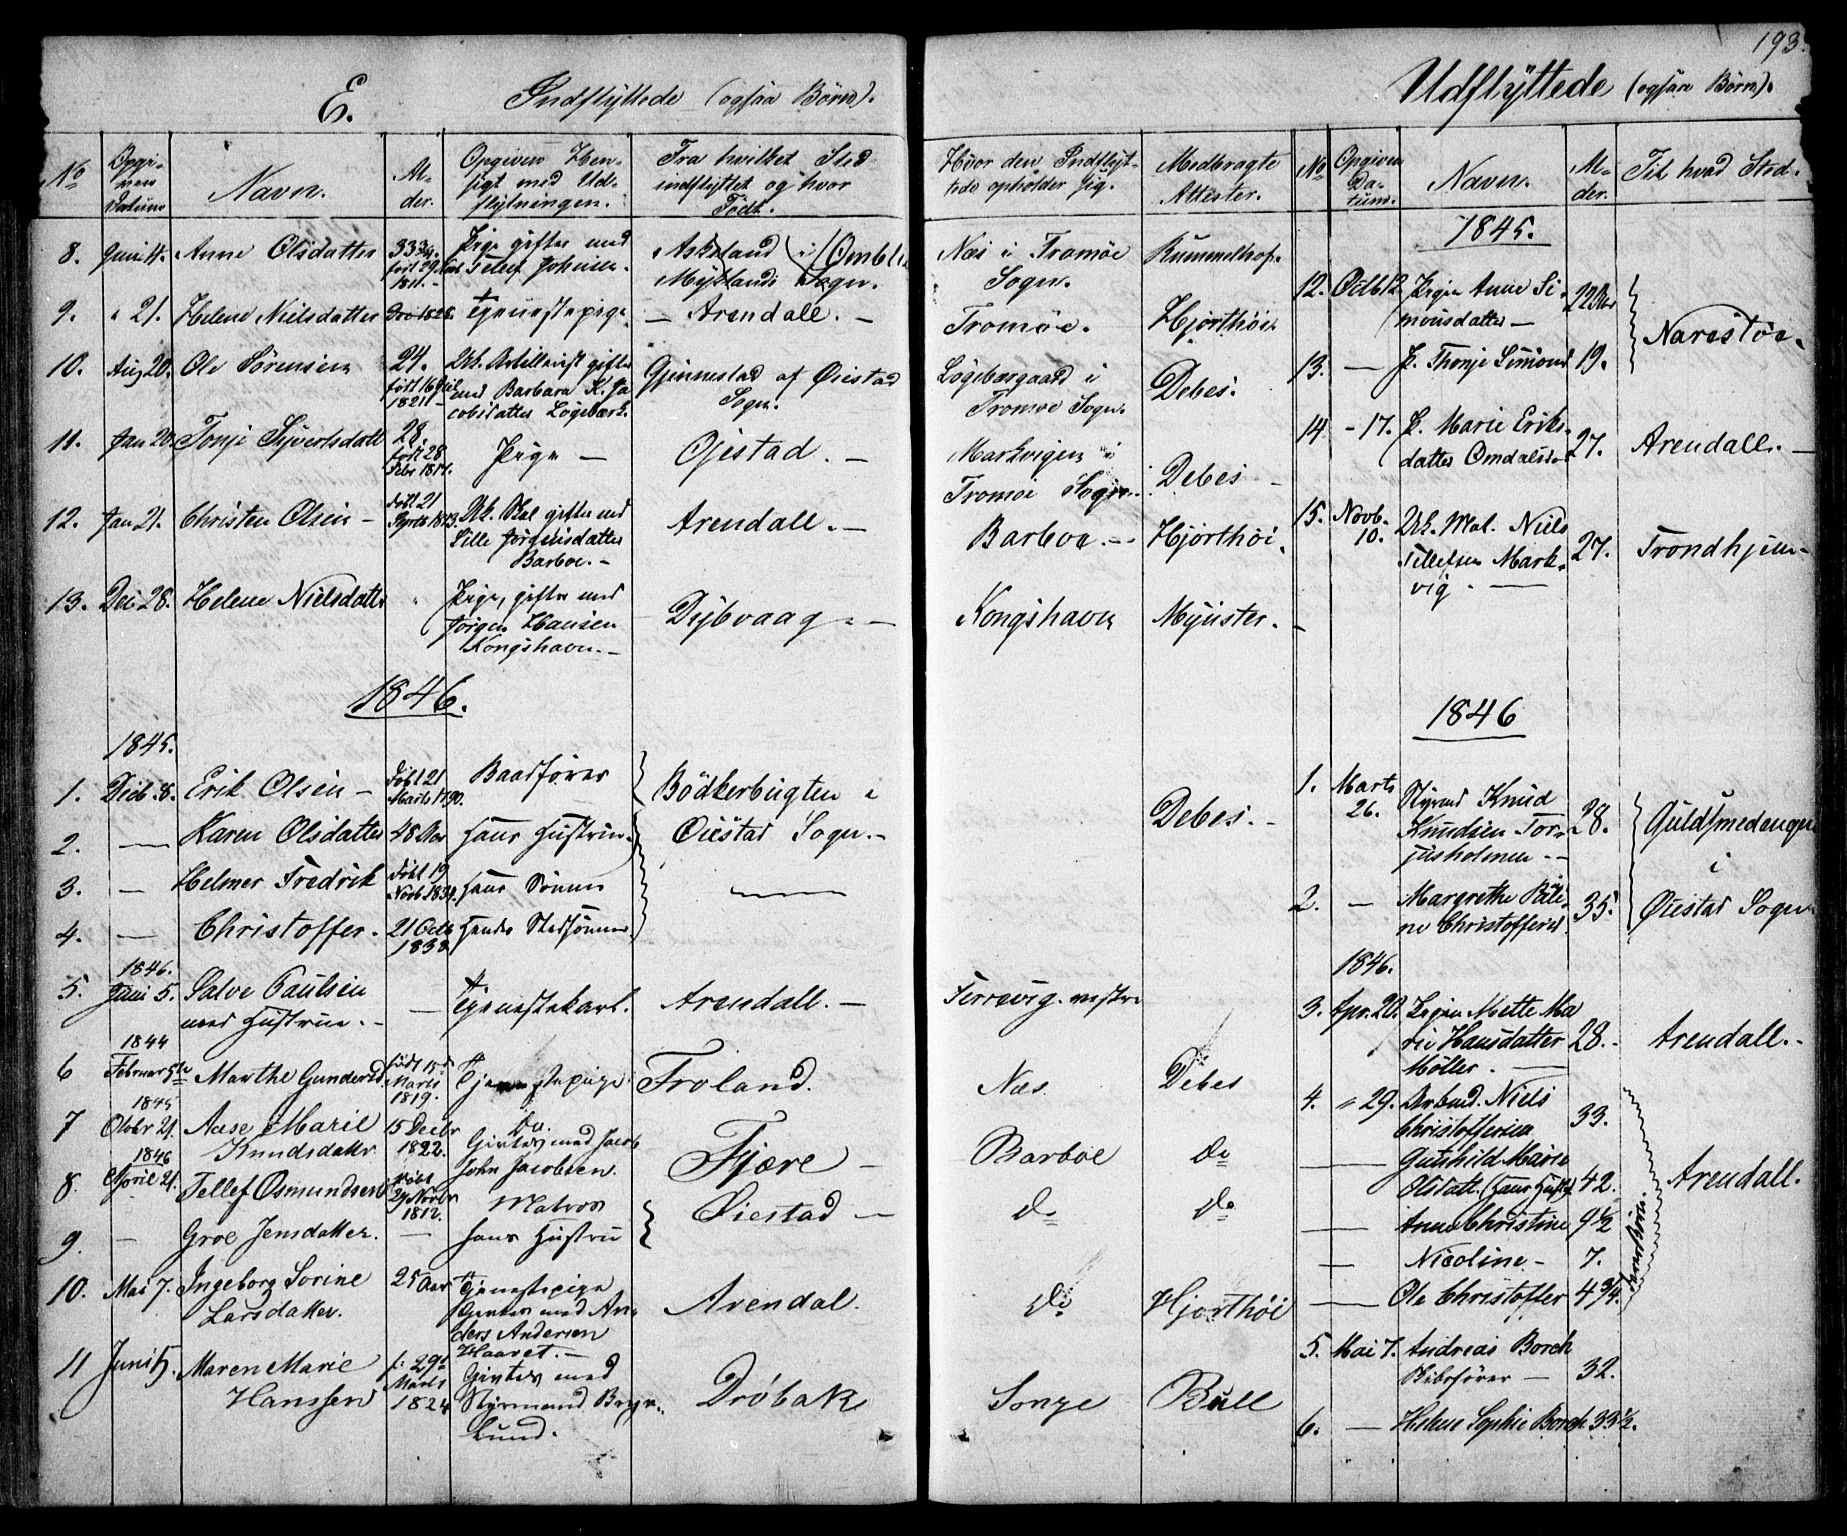 193.
E. Indflyttede (ogsaa Børn).
Udflyttede (ogsaa Børn).
No Opgiven Datum Navn. Alder. Opgiven Hensigt med Udflytningen. Fra hvilket Sted indflyttet og hvor Født. Hvor den Indflyttede opholder sig. Medbragte Attester.
8. Juni 14. Anne Olsdatter 33 født 29 1811. Pige gifter med Tellef Johnsen. Askeland i Omblie Myklands Sogn. Næs i Tromøe Sogn. Rummelhof.
9. " 21. Helene Nielsdatter 1828. Tjenestepige. Arendall. Tromøe. Hjorthøi.
10. Aug 20. Ole Sørensen 24. født 16 1821 Uk. Artillerist gifter med Barbara K. Jacobsdatter Løgebærk. Gjennestad af Øiestad Sogn. Løgebærgaard i Tromøe Sogn. Debes.
11. Jan 20. Tonje Syvertsdatt 28. født 28 Febr 1817. Pige Ojestad. Markvigen i Tromøe Sogn. Debes
12. Jan 21. Christen Olsen født 21 1813. Uk. Mat gifter med Sille Jørgensdatter Barboe. Arendall. Barboe. Hjorthöi.
13. Dec 28. Helene Nielsdatter " Pige, gifter med Jørgen Hansen Kongshavn. Dybvaag Kongshavn Mynster.
1846.
1845.
1. Decb. 8. Erik Olsen født 21 Marts 1790. Baadfører Bödkerbugten i
2. — Karen Olsdatter 48 Aar hans Hustrue Øiestad Sogn. Debes.
3. — Helmer Fredrik født 19 Novb 1831. hans Sönner
4. — Christoffer. 21 Octb 1838. hendes Stedsönner
1846.
5. Juni 5. Salve Paulsen med Hustrue. — Tjenestekarl. Arendall. Ferrevig. vestre
1844
6 Februar 5te Marthe Gunders født 15d Marts 1819. Tjenestepige Froland. Næs. Debes
1845
7 October 21. Aase Marie Knudsdatter 15 Decbr 1822. Do. Giftes med Jacob John Jacobsen. Fjære Barboe do
1846
8. April 21. Tellef Osmundsen født 29 Novbr 1812. Matros Øiestad do do
9. — Groe Jensdatter. — hans Hustru
10. Mai 7. Ingeborg Sorine Larsdatter. 25 Aar Tjenestepige Giftes med Anders Andersen Haaret. Arendal. do Hjorthöi
11 Juni 5. Maren Marie Hanssen f. 29d Marts 1824 Giftes med Styrmand Bryn Lund. Dröbak Songe Bull
No Opgiven Datum. Navn. Alder. Til hvad Sted.
1845.
12. Octb 12 Pigen Anne Simonsdatter 22 Aar Narestøe.
13. — P. Thonje Simons 19.
14 - 17. P. Marie Eriksdatter Omdalsøe 27. Arendall.
15. Novb. 10. Uk. Mat. Niels Tellefsen Markvig 27. Trondhjem
1846
1. Marts 26. Styrmd Knud Knudsen Torjusholmen 28. Guldsmedengen i
2. — Margrethe Pauline Christoffers 35. Øiestad Sogn
1846.
3. Apr. 20. Pigen Mette Marie Hansdatter Møller. 28. Arendall.
4. " 29. Arbmd. Niels Christoffersen 33. Arendall.
— Gunhild Marie Olsdatt. (hans Hustr 42.
— Anne Christine 9½ deres Börn.
— Nicoline 7.
— Ole Christoffer 4¾.
5. Mai 7. Andreas Borch 32.
6. — Helene Sophie Borch 33½.